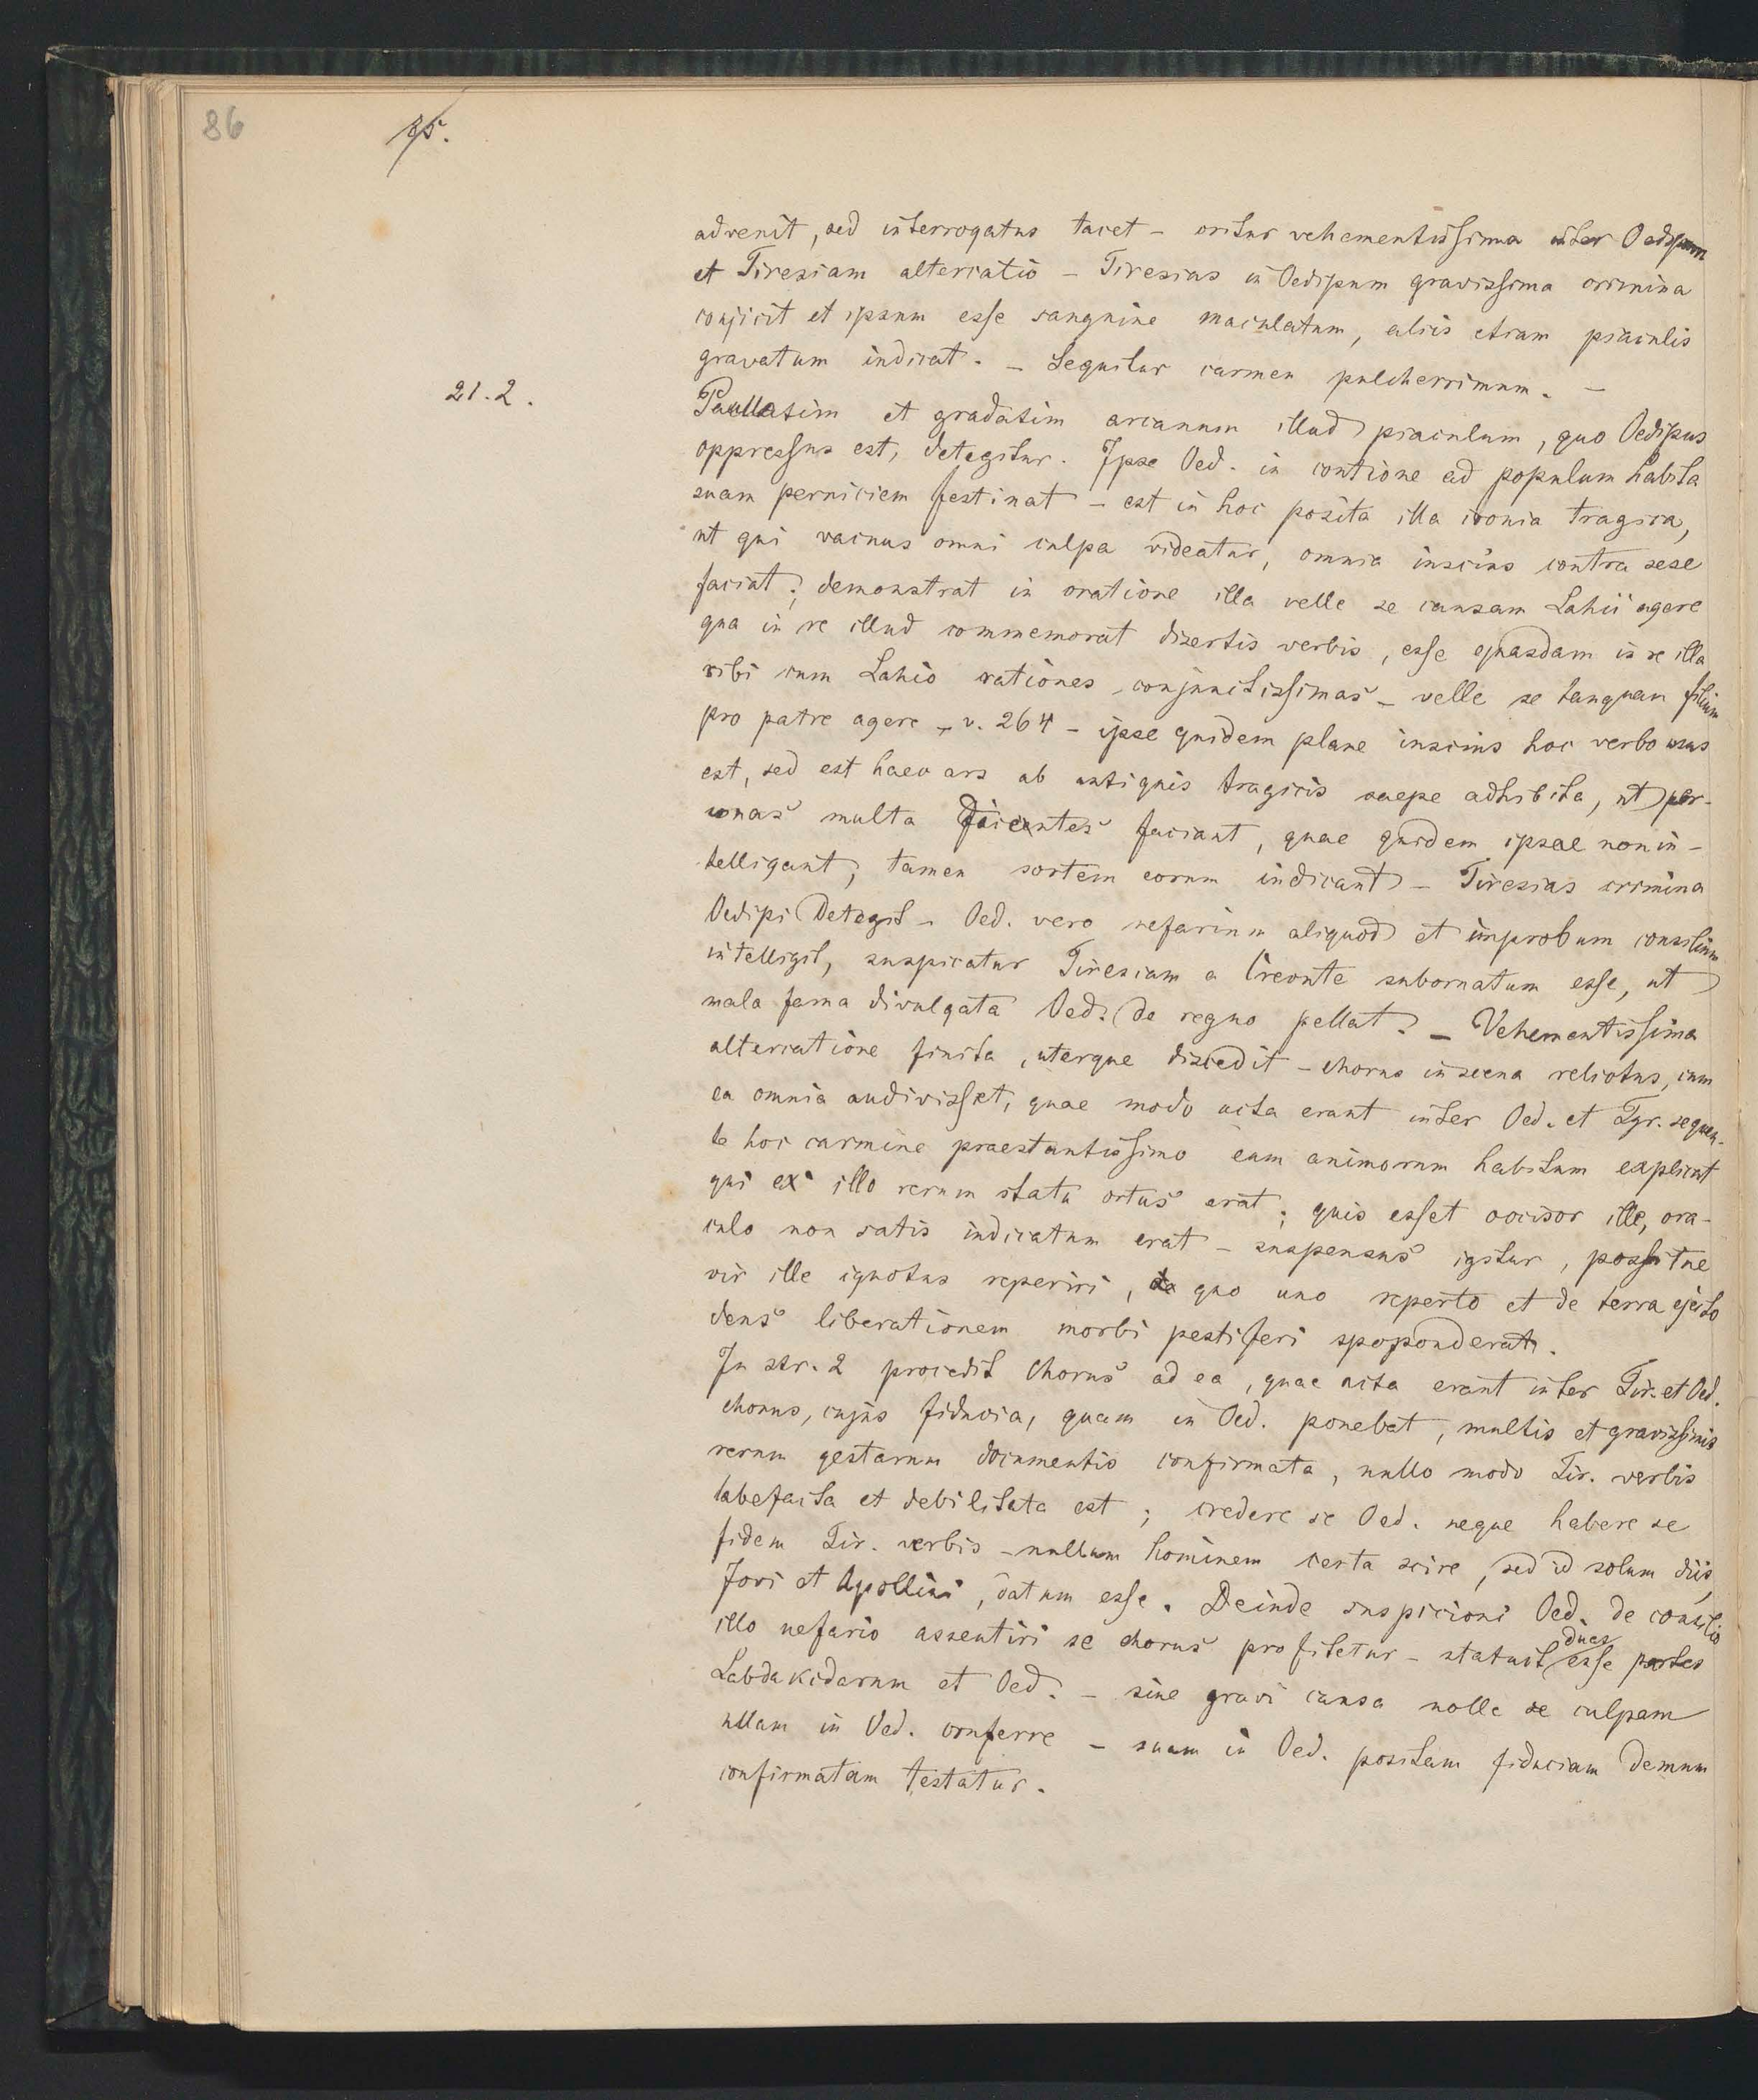 86
95.
advenit, sed interrogatus tacet – oritur vehementissima inter Oedipum
et Tiresiam altercatio – Tiresias in Oedipum gravissima crimina
conjicit et ipsum esse sanguine maculatum, aliis etiam piaculis
gravatum indicat. – Sequitur carmen pulcherrimum. –
21.2.
Paullatim et gradatim arcanum illud piaculum, quo Oedipus
oppressus est, detegitur. Ipse Oed. in contione ad populum habita
suam perniciem festinat – est in hoc posita illa ironia tragica,
ut qui vacuus omni culpa videatur, omnia inscius contra sese
faciat; demonstrat in oratione illa velle se causam Lahii agere
qua in re illud commemorat disertis verbis, esse quasdam in re illa
sibi cum Lahio rationes conjunctissimas – velle se tanquam filium
pro patre agere – v. 264 – ipse quidem plane inscius hoc verbo usus
est, sed est haec ars ab antiquis tragicis saepe adhibita, ut per-
sonas multa dicentes faciant, quae quidem ipsae non in-
telligant, tamen sortem eorum indicant – Tiresias crimina
Oedipi detegit – Oed. vero nefarium aliquod et improbum consilium
intelligit, suspicatur Tiresiam a Creonte subornatum esse, ut
mala fama divulgata Oed. de regno pellat. – Vehementissima
altercatione finita, uterque discedit – chorus in scena relictus, cum
ea omnia audivisset, quae modo acta erant inter Oed. et Tyr. sequen-
te hoc carmine praestantissimo eum animorum habitum explicat
qui ex illo rerum statu ortus erat; quis esset occisor ille, ora-
culo non satis indicatum erat – suspensus igitur, possitne
vir ille ignotus reperiri, de quo uno reperto et de terra ejecto
deus liberationem morbi pestiferi spoponderat.
In str. 2 procedit chorus ad ea, quae acta erant inter Tir. et Oed.
chorus, cujus fiducia, quam in Oed. ponebat, multis et gravissimis
rerum gestarum documentis confirmata, nullo modo Tir. verbis
labefacta et debilitata est; credere se Oed. neque habere se
fidem Tir. verbis – nullum hominem certa scire, sed id solum diis,
Jovi et Apollini, datum esse. Deinde suspicioni Oed. de consilio
illo nefario assentiri se chorus profitetur – statuit duas esse partes
Labdakidarum et Oed. – sine gravi causa nolle se culpam
ullam in Oed. conferre – suam in Oed. positam fiduciam demum
confirmatam testatur.